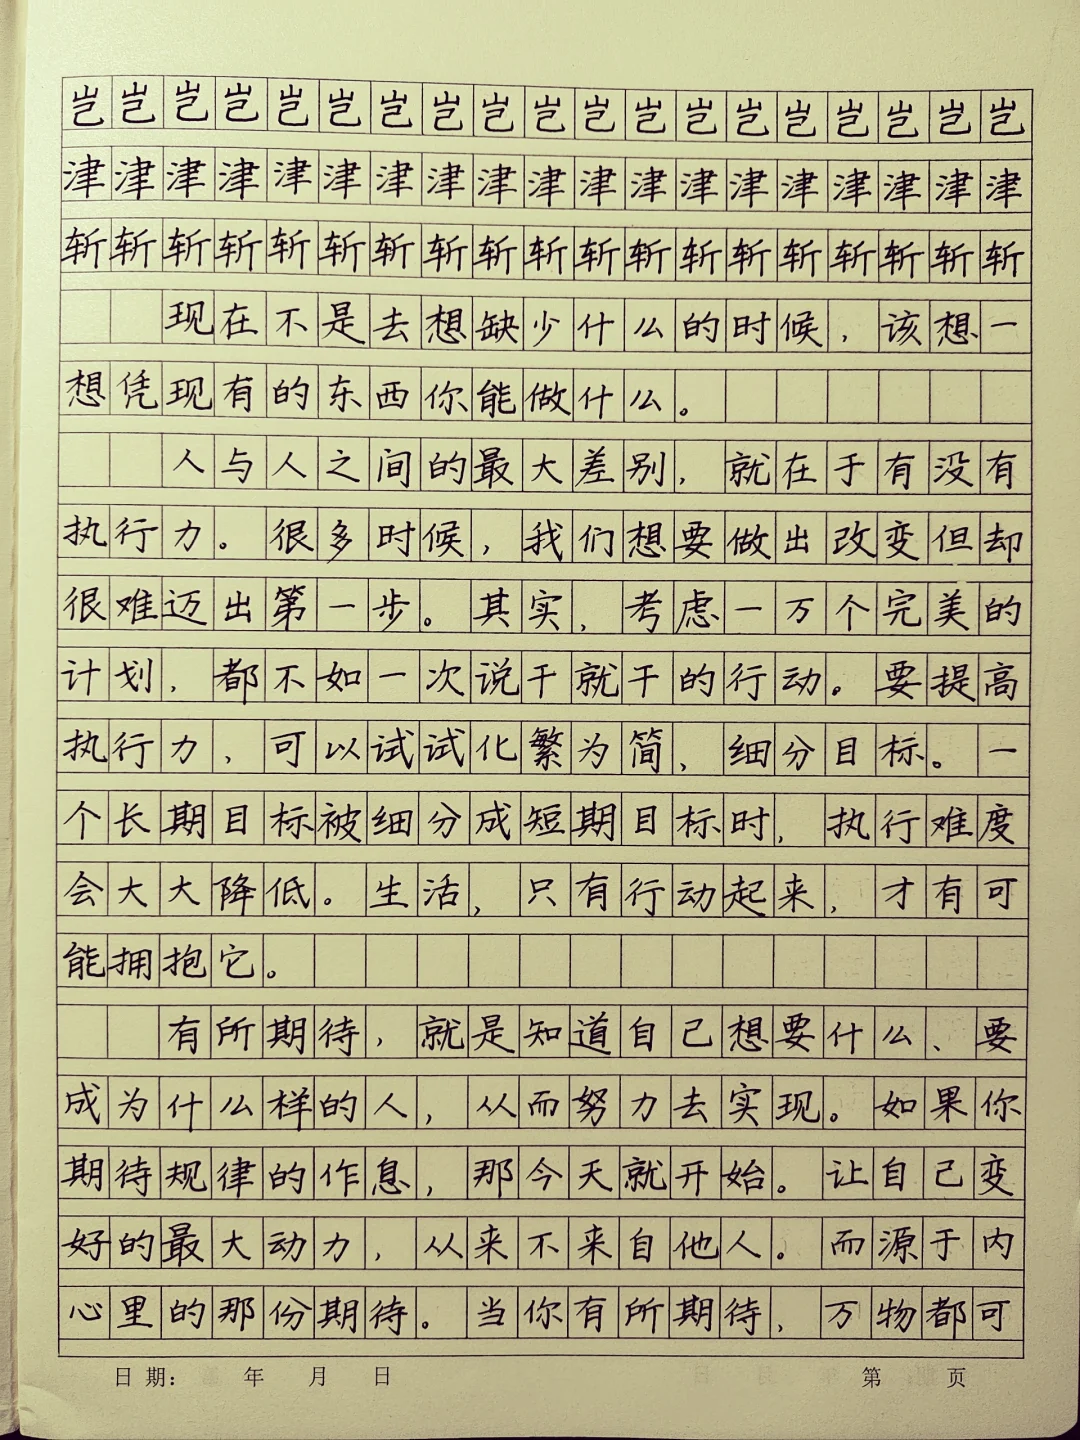 岂岂岂岂岂岂岂岂岂岂岂岂岂岂岂岂岂岂岂
津津津津津津津津津津津津津津津津津津津
斩斩斩斩斩斩斩斩斩斩斩斩斩斩斩斩斩斩斩
现在不是去想缺少什么的时候，该想一
想凭现有的东西你能做什么。
人与人之间的最大差别，就在于有没有
执行力。很多时候，我们想要做出改变但却
很难迈出第一步。其实，考虑一万个完美的
计划，都不如一次说干就干的行动。要提高
执行力，可以试试化繁为简，细分目标。一
个长期目标被细分成短期目标时，执行难度
会大大降低。生活，只有行动起来，才有可
能拥抱它。
有所期待，就是知道自己想要什么、要
成为什么样的人，从而努力去实现。如果你
期待规律的作息，那今天就开始。让自己变
好的最大动力，从来不来自他人。而源于内
心里的那份期待。当你有所期待，万物都可
日期： 年 月 日 第 页